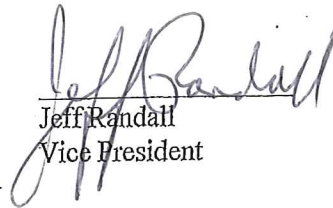 Jeff Randall
Jeff Randall
Vice President